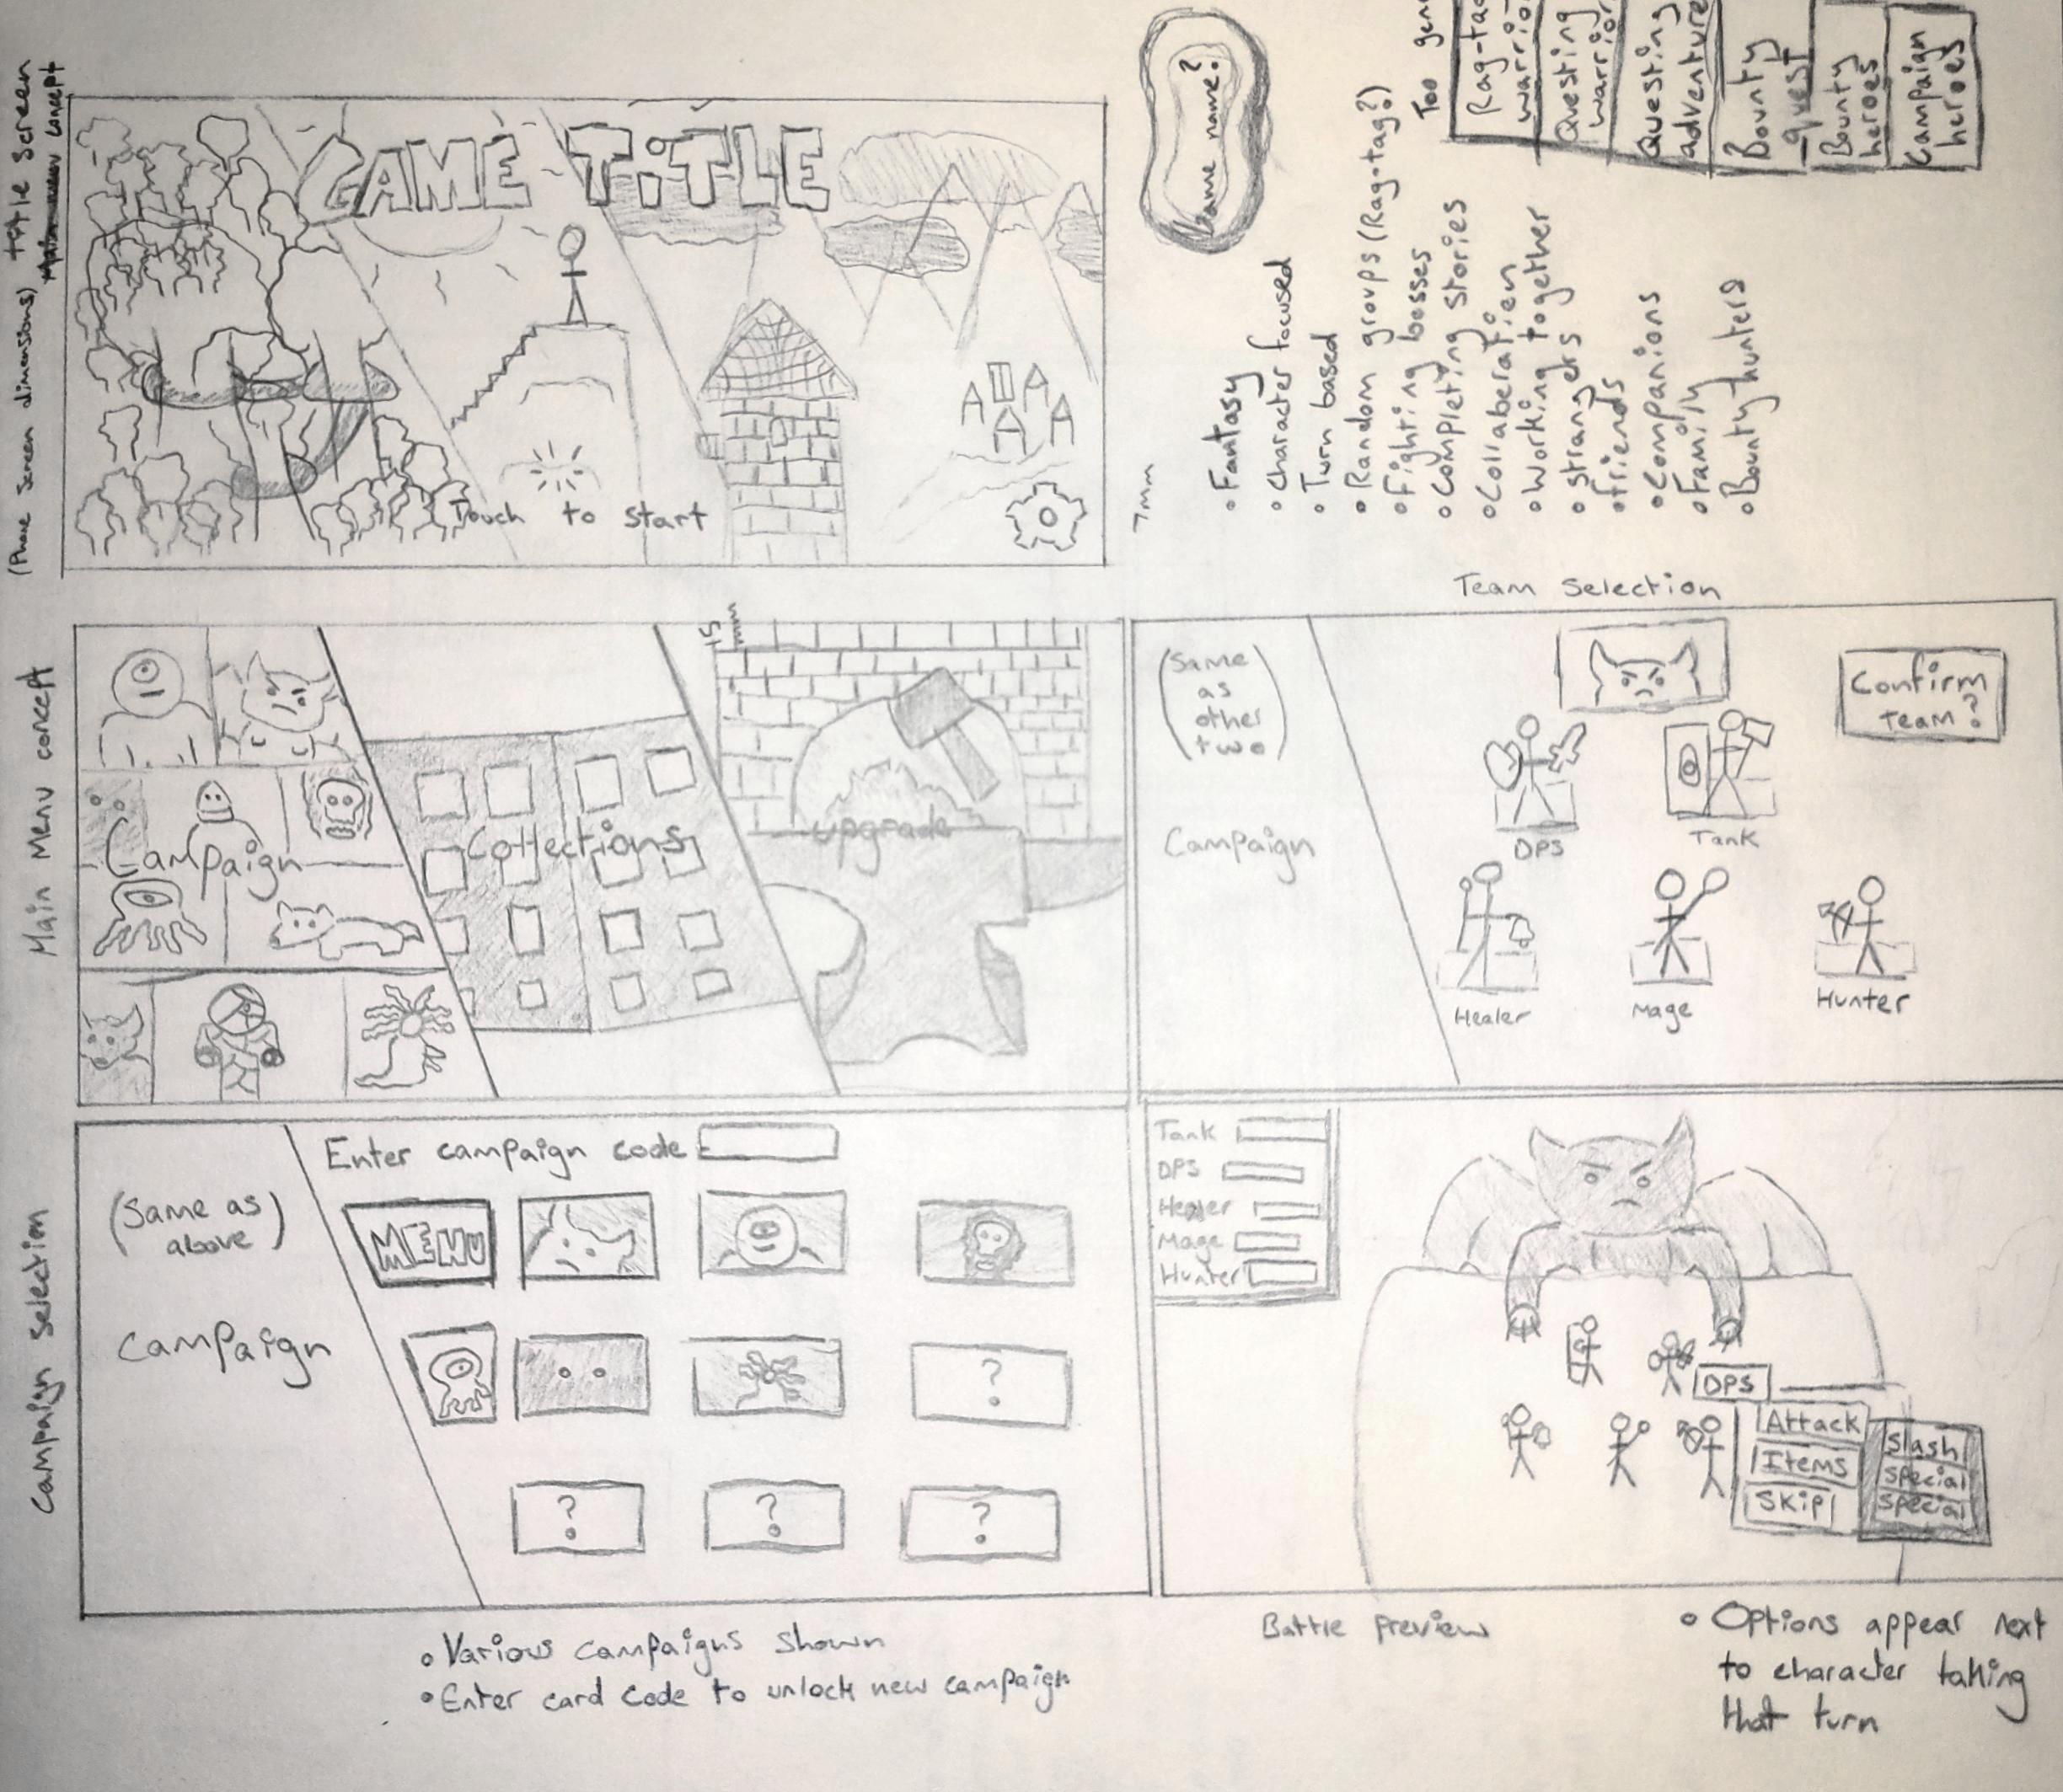 (Phone screen dimensions) title screen
concept
GAME TiTLE
Touch to start
Game name?
7mm
• Fantasy
• Character focused
• Turn based
• Random groups (Rag-tag?)
• Fighting bosses
• Completing stories
• Collaberation
• Working together
• Strangers
• friends
• Companions
• Family
• Bounty hunters
Too
Rag-tag
warrior
Questing
warrior
Questing
adventure
Bounty
quest
Bounty
heroes
Campaign
heroes
Main Menu concept
Campaign
Collections
upgrade
15
mm
Team Selection
(Same
as
other
two)
Campaign
Confirm
team?
DPS
Tank
Healer
Mage
Hunter
Campaign Selection
(Same as
above)
Campaign
Enter campaign code:
MENU
?
?
?
?
• Various campaigns shown
• Enter card code to unlock new campaign
Tank
DPS
Healer
Mage
Hunter
DPS
Attack
Items
Skip
Slash
Special
Special
Battle Preview
• Options appear next
to character taking
that turn